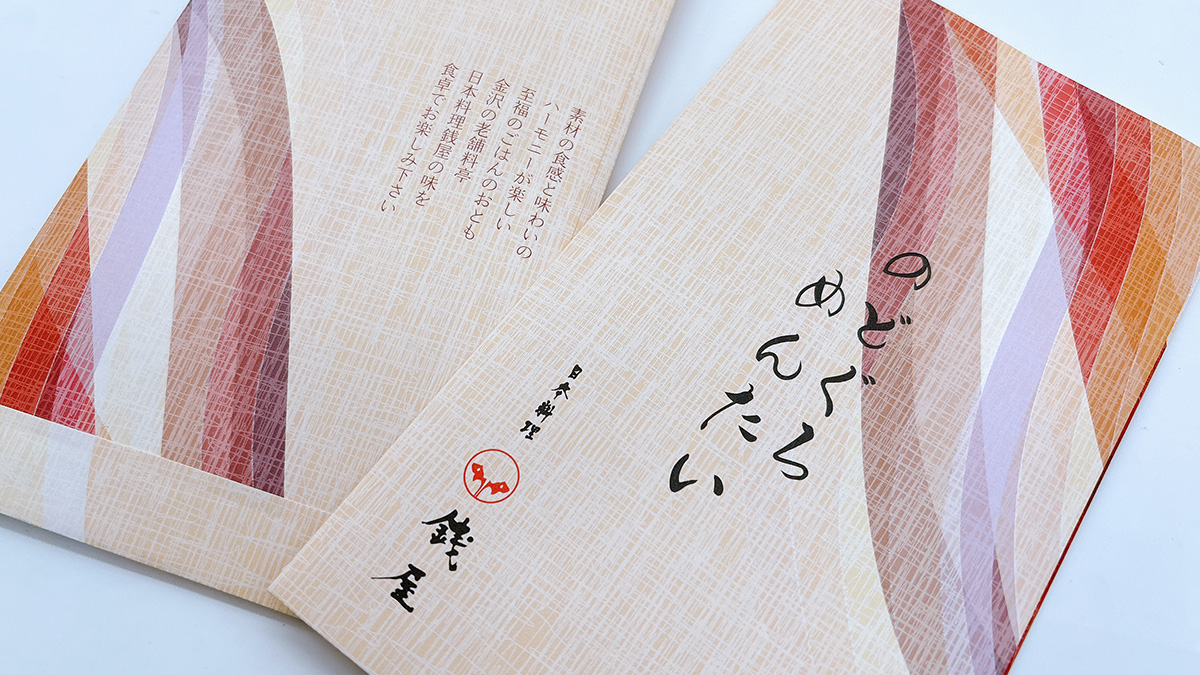 素材の食感と味わいの
ハーモニーが楽しい
至福のごはんのおとも
金沢の老舗料亭
日本料理銭屋の味を
食卓でお楽しみ下さい
のどぐろ
めんたい
日本料理
銭屋